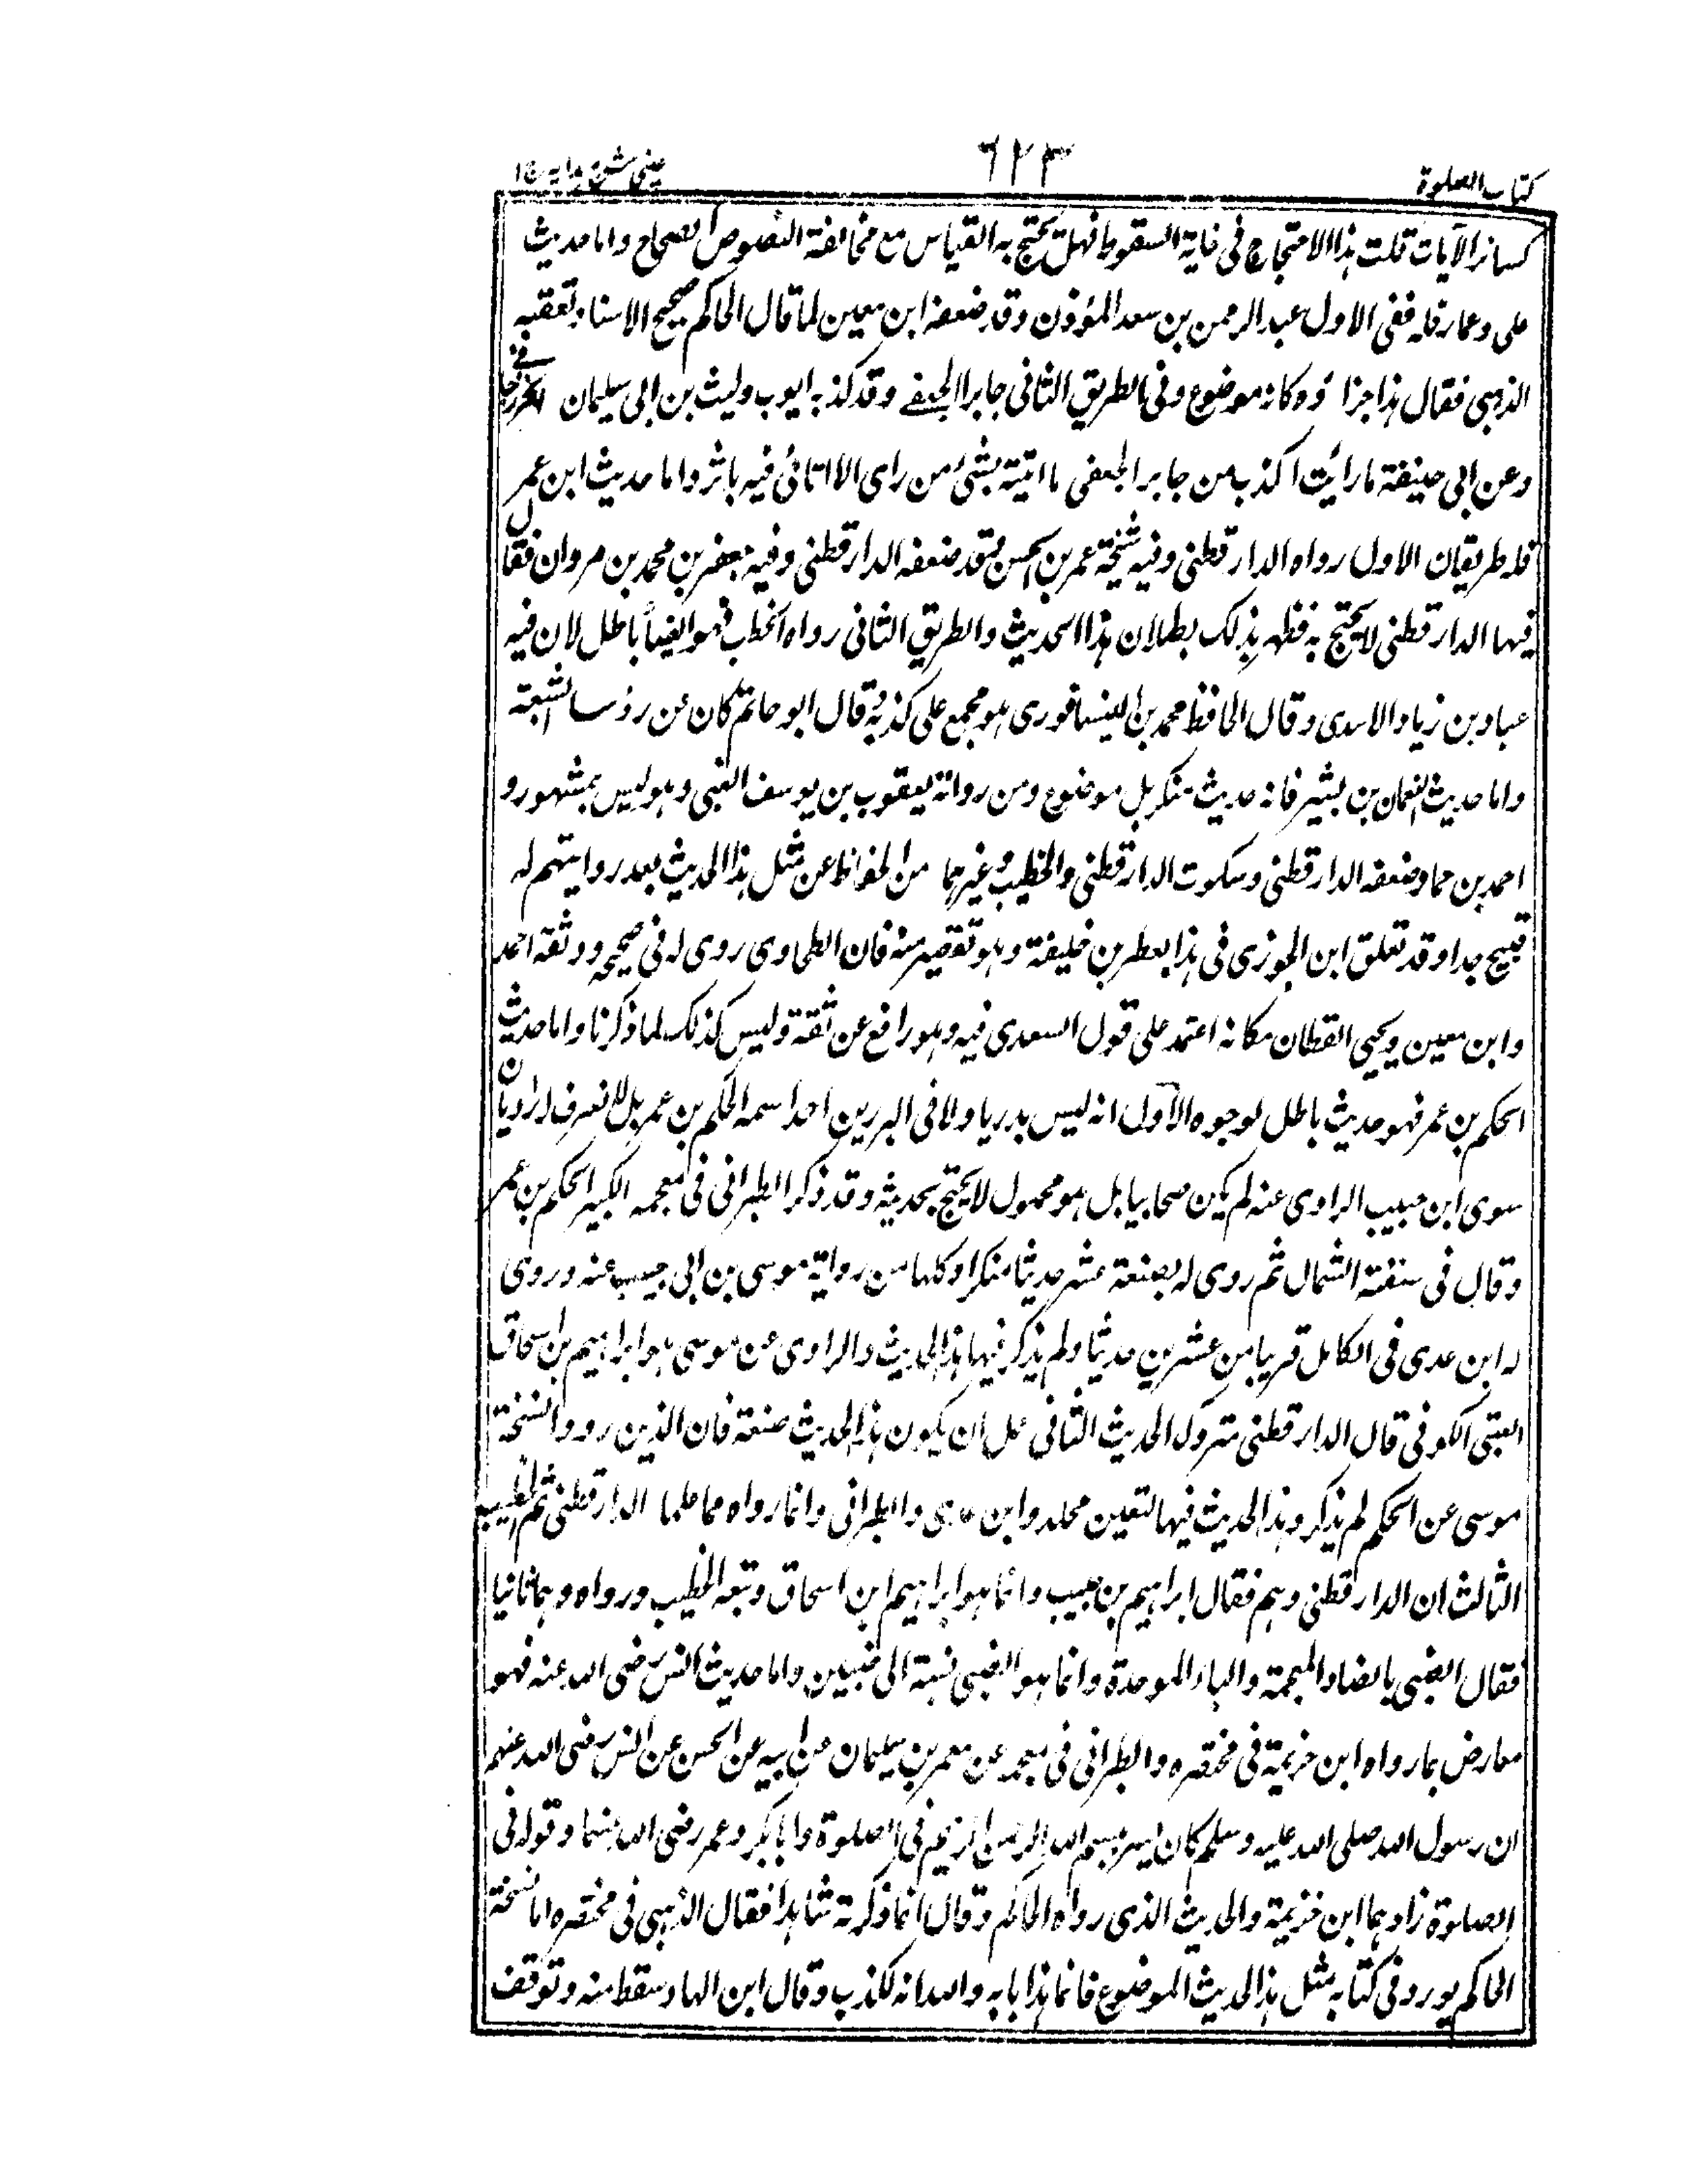 كتاب الصلوة ٦٢٣ عينى شرح هدايه ج١
كسائر الآيات قلت هذا الاحتجاج فى غاية السقوط فهل يحتج به القياس مع مخالفة النصوص الصحاح واما حديث
على وعمار فله ففى الاول عبد الرحمن بن سعد المؤذن وقد ضعفه ابن معين لما قال الحاكم صحيح الاسناد تعقبه
الذهبى فقال هذا جزا ؤه كانه موضوع وفى الطريق الثانى جابر الجعفى وقد كذبه ايوب وليث بن ابى سليمان
وعن ابى حنيفة ما رأيت اكذب من جابر الجعفى ما اتيته بشئ من راى الا اتانى فيه باثر واما حديث ابن عمر
فله طريقان الاول رواه الدارقطنى وفيه شيخه عمر بن الحسن قد ضعفه الدارقطنى وفيه جعفر بن محمد بن مروان فقال
فيها الدارقطنى لا يحتج به فظهر بذلك بطلان هذا الحديث والطريق الثانى رواه الخطيب فهو ايضاً باطل لان فيه
عباد بن زياد الاسدى وقال الحافظ محمد بن النيسافورى هو مجمع على كذبه وقال ابو حاتم كان من رؤسا الشيعة
واما حديث النعمان بن بشير فانه حديث منكر بل موضوع ومن رواته يعقوب بن يوسف الضبى وهو ليس بمشهور و
احمد بن حماد ضعفه الدارقطنى وسكوت الدارقطنى والخطيب وغيرهما من الحفاظ عن مثل هذا الحديث بعد روايتهم له
قبيح جدا وقد تعلق ابن الجوزى فى هذا بعطر بن خليفة وهو تقصير منه فان الطحاوى روى له فى صحيحه ووثقه احمد
وابن معين ويحيى القطان مكانه اعتمد على قول السعدى فيه وهو رافع عن ثقة وليس كذلك لما ذكرنا واما حديث
الحكم بن عمر فهو حديث باطل لوجوه الاول انه ليس بدريا ولا فى البدريين احد اسمه الحكم بن عمر بل لا نعرف له
سوى ابن حبيب الراوى عنه لم يكن صحابيا بل هو مجهول لا يحتج بحديثه وقد ذكر الطبرانى فى معجمه الكبير الحكم بن عمر
وقال فى سنفتة الشمال ثم روى له بضعة عشر حديثا منكرا وكلها من رواية موسى بن ابى حبيب عنه وروى
له ابن عدى فى الكامل قريبا من عشرين حديثا ولم يذكر فيها هذا الحديث والراوى عن موسى هو ابراهيم بن اسحاق
الكوفى قال الدارقطنى متروك الحديث الثانى ان يكون هذا الحديث صنعة فان الذين رووا نسخة
موسى عن الحكم لم يذكروا هذا الحديث فيها لتعين مخلد وابن عدى والطبرانى وانما رواه مما علمنا الدارقطنى ثم الخطيب
الثالث ان الدارقطنى وهم فقال ابراهيم بن حبيب وانما هو ابراهيم ابن اسحاق وتبعه الخطيب ورواه وهما ثانيا
فقال الضبى بالضاد المعجمة والباء الموحدة وانما هو نسبة الى واما حديث انس رضى الله عنه فهو
معارض بما رواه ابن خزيمة فى مختصره والطبرانى فى معجمه عن معمر بن سليمان عن ابيه عن الحسن عن انس رضى الله عنهما
ان رسول الله صلى الله عليه وسلم كان يسر ببسم الله الرحمن الرحيم فى الصلوة وابا بكر وعمر رضى الله عنهما وقوله فى
الصلوة زادهما ابن خزيمة والحديث الذى رواه الحاكم وقال انما ذكرته شاهدا فقال الذهبى فى مختصره
الحاكم يورد فى كتابه مثل هذا الحديث الموضوع فانما هذا بابه والله انه لكذب وقال ابن الهاد سقط منه وتوقف